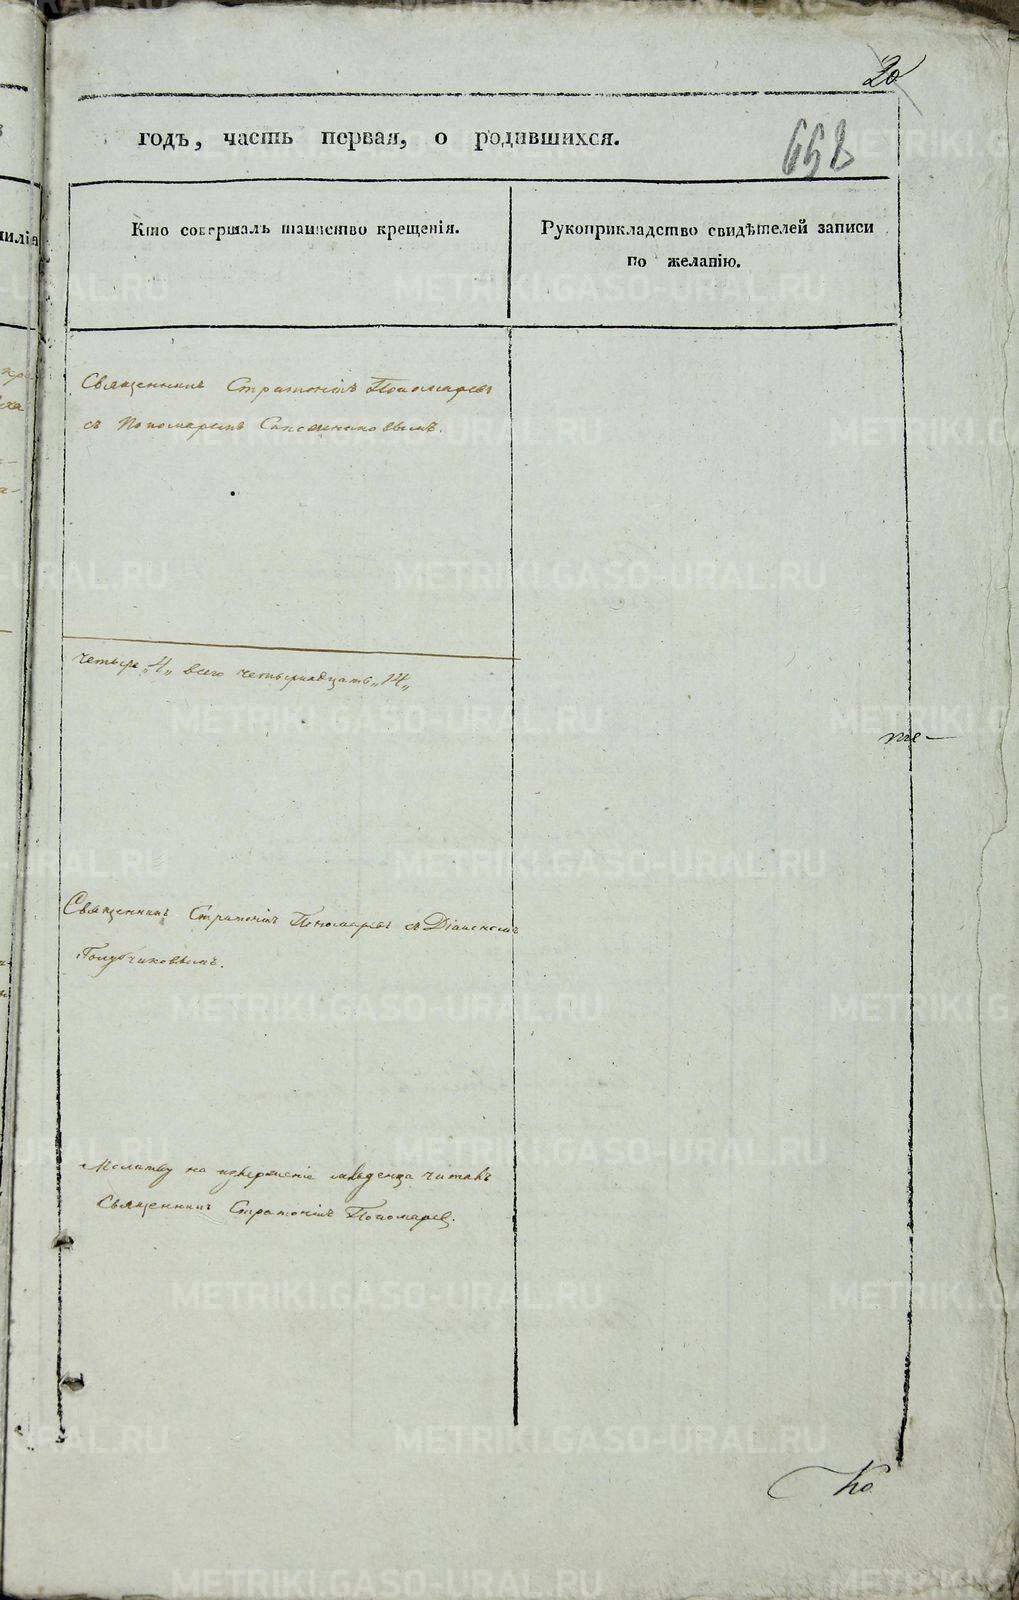 20
годъ, часть первая, о родившихся.
658
Кто совершалъ таинство крещенія.
Рукоприкладство свидѣтелей записи
по желанію.
Священникъ Стратоникъ Пономаревъ
съ Пономаремъ
четыре „4„ всего четырнадцать „14„
Священникъ Стратоникъ Пономаревъ съ Діакономъ
Голубчиковымъ.
Молитву на изверженіе младенца читалъ
Священникъ Стратоникъ Пономаревъ.
Ко
METRIKI.GASO-URAL.RU